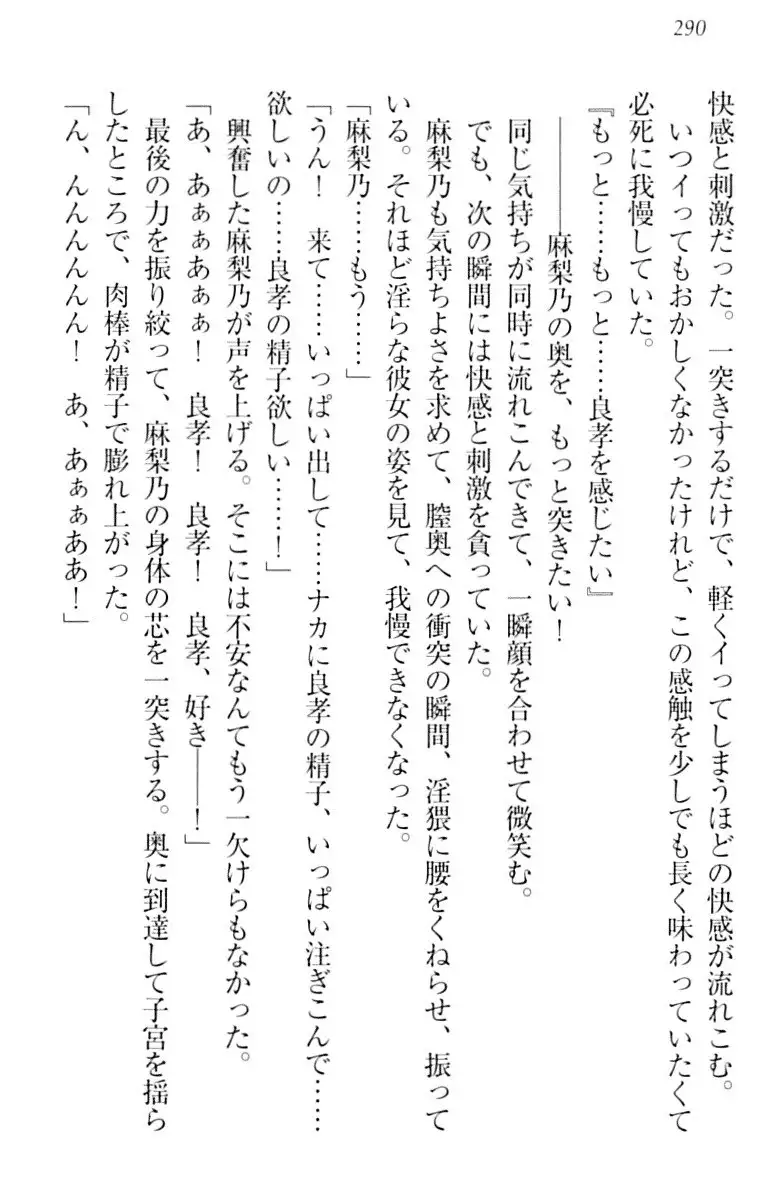 290
快感と刺激だった。一突きするだけで、軽くイってしまうほどの快感が流れこむ。
いつイってもおかしくなかったけれど、この感触を少しでも長く味わっていたくて
必死に我慢していた。
『もっと……もっと……良孝を感じたい』
――麻梨乃の奥を、もっと突きたい!
同じ気持ちが同時に流れこんできて、一瞬顔を合わせて微笑む。
でも、次の瞬間には快感と刺激を貪っていた。
麻梨乃も気持ちよさを求めて、膣奥への衝突の瞬間、淫猥に腰をくねらせ、振って
いる。それほど淫らな彼女の姿を見て、我慢できなくなった。
「麻梨乃……もう……」
「うん! 来て……いっぱい出して……ナカに良孝の精子、いっぱい注ぎこんで……
欲しいの……良孝の精子欲しい……!」
興奮した麻梨乃が声を上げる。そこには不安なんてもう一欠けらもなかった。
「あ、あぁぁあぁぁ! 良孝! 良孝! 良孝、好き――!」
最後の力を振り絞って、麻梨乃の身体の芯を一突きする。奥に到達して子宮を揺ら
したところで、肉棒が精子で膨れ上がった。
「ん、んんんんんん! あ、あぁぁああ!」